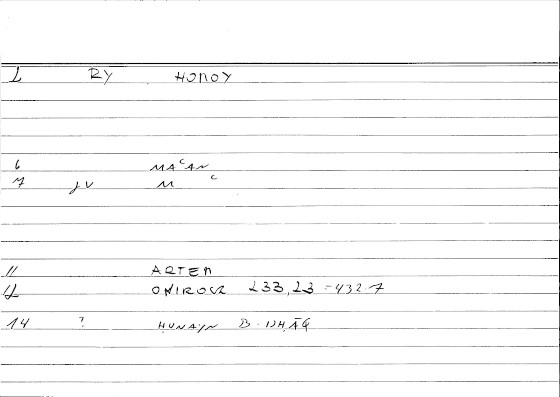 1 RY HONOY
6 MACAN
7 JV M C
11 ARTEM
12 ONIROCR 233,23 = 432.7
14 ? ḤUNAYN B. ISḤĀQ